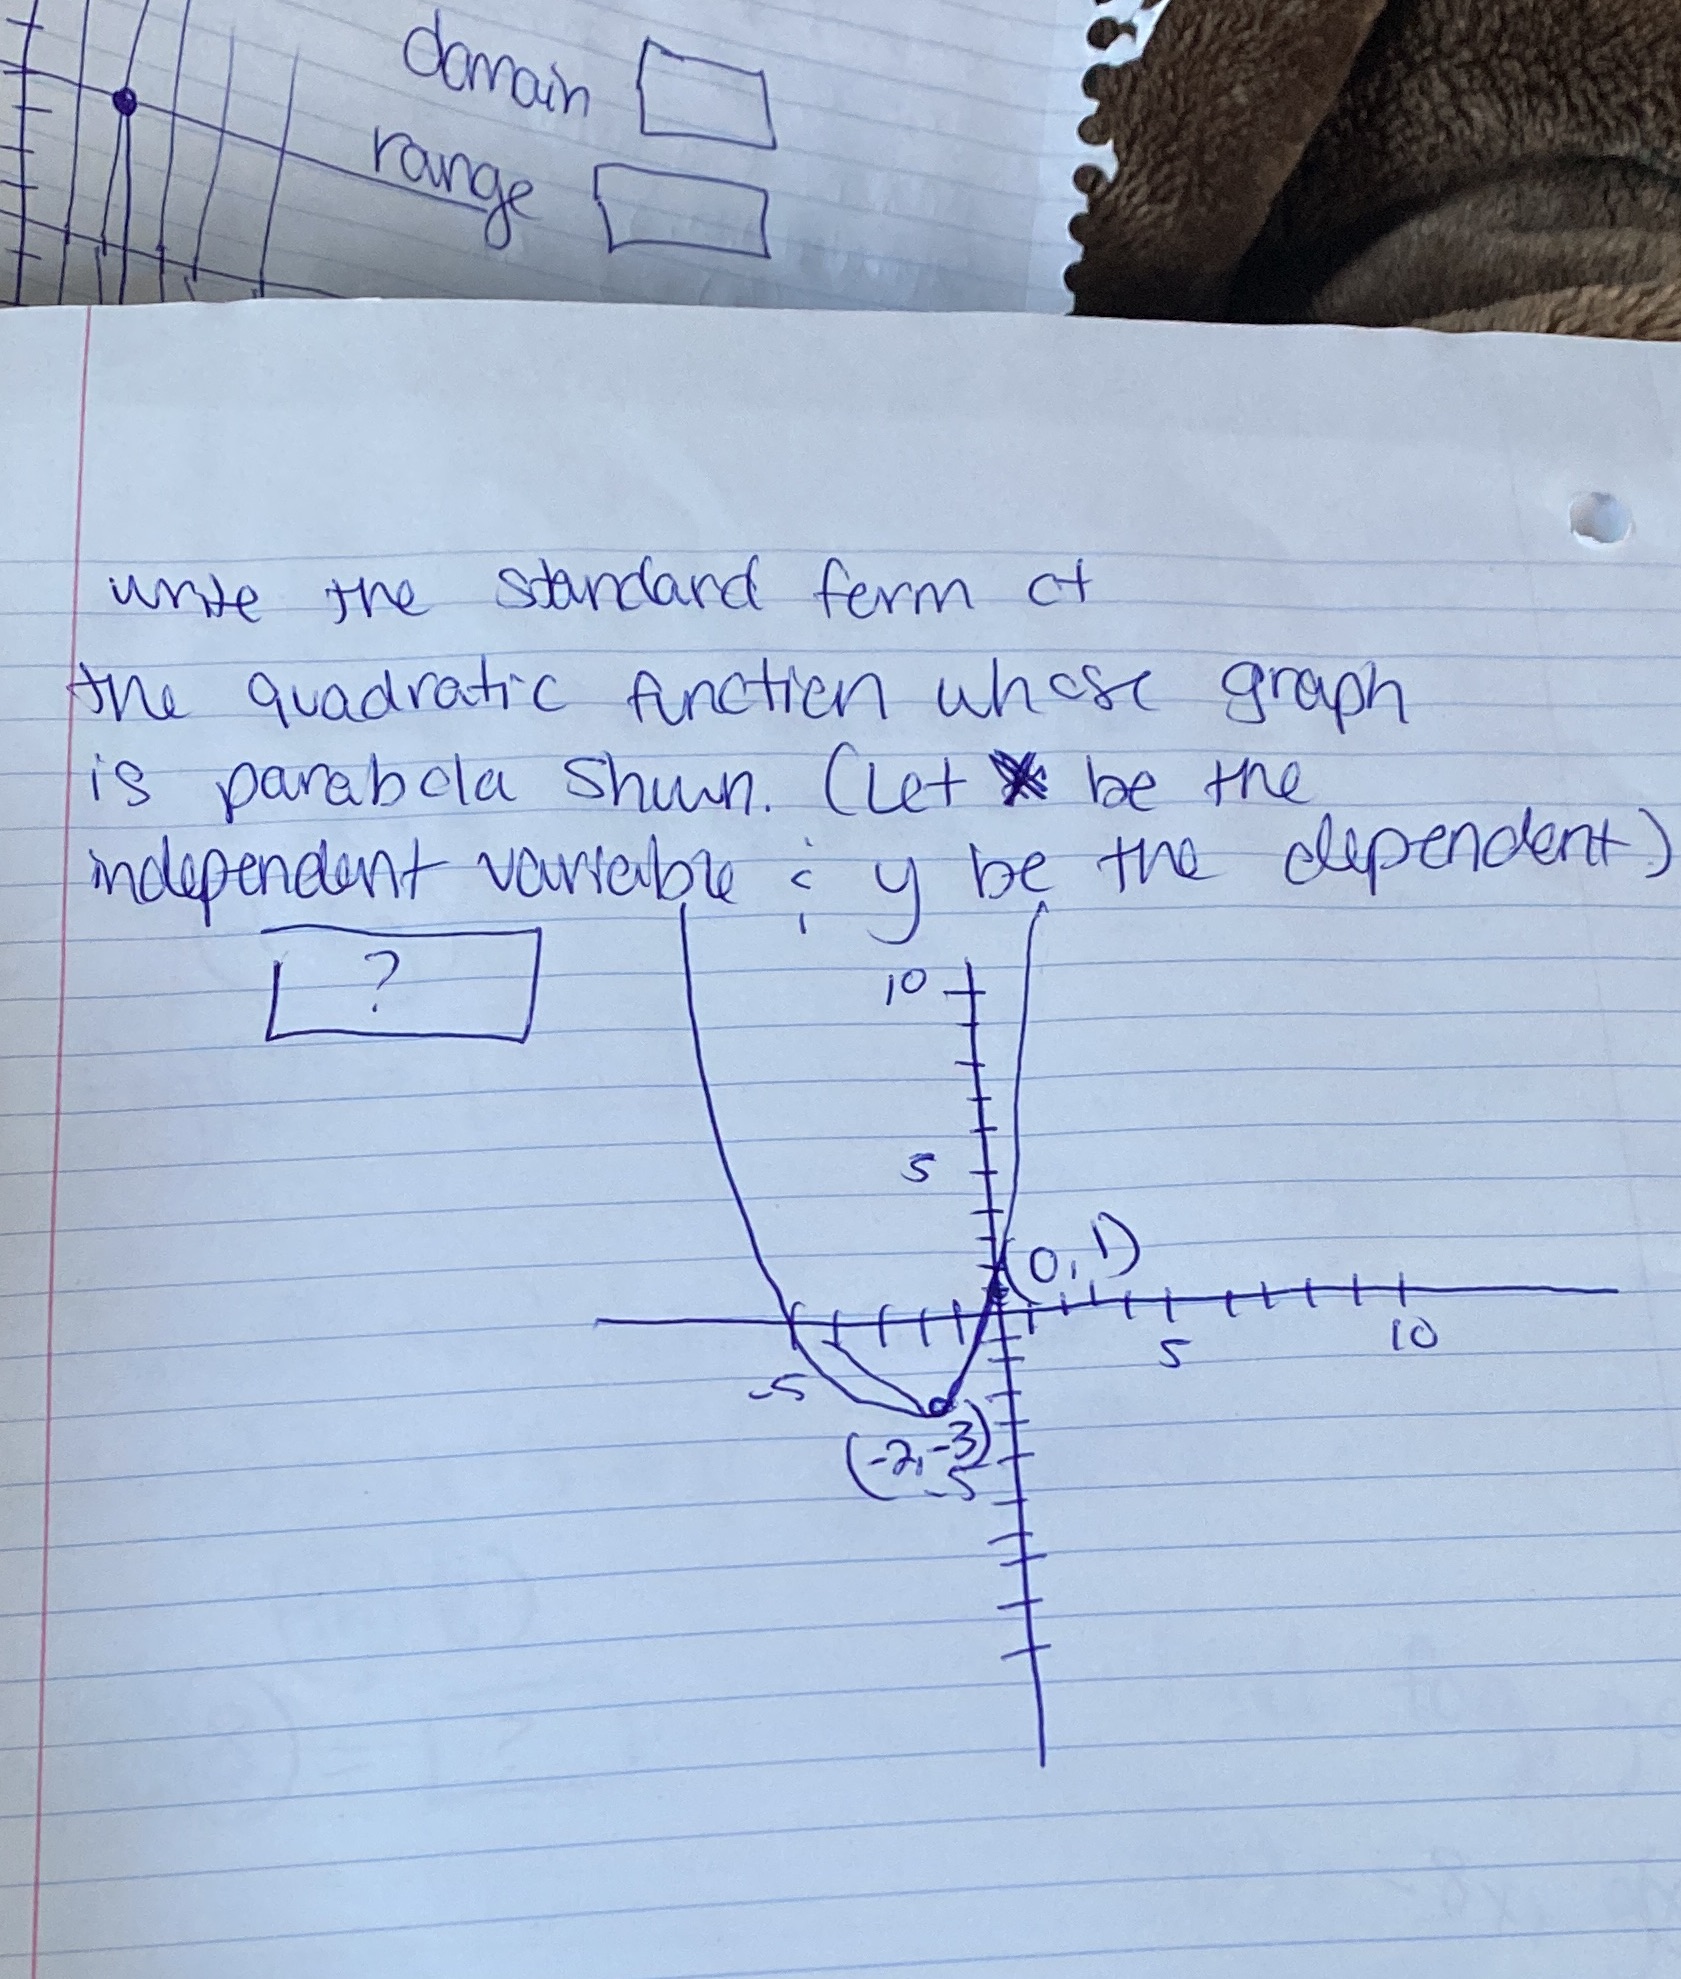 domain
range
write the standard form of
the quadratic function whose graph
is parabola shown. (Let x be the
independent variable & y be the dependent)
?
10
5
(0, 1)
5
10
-5
(-2, -3)
-5